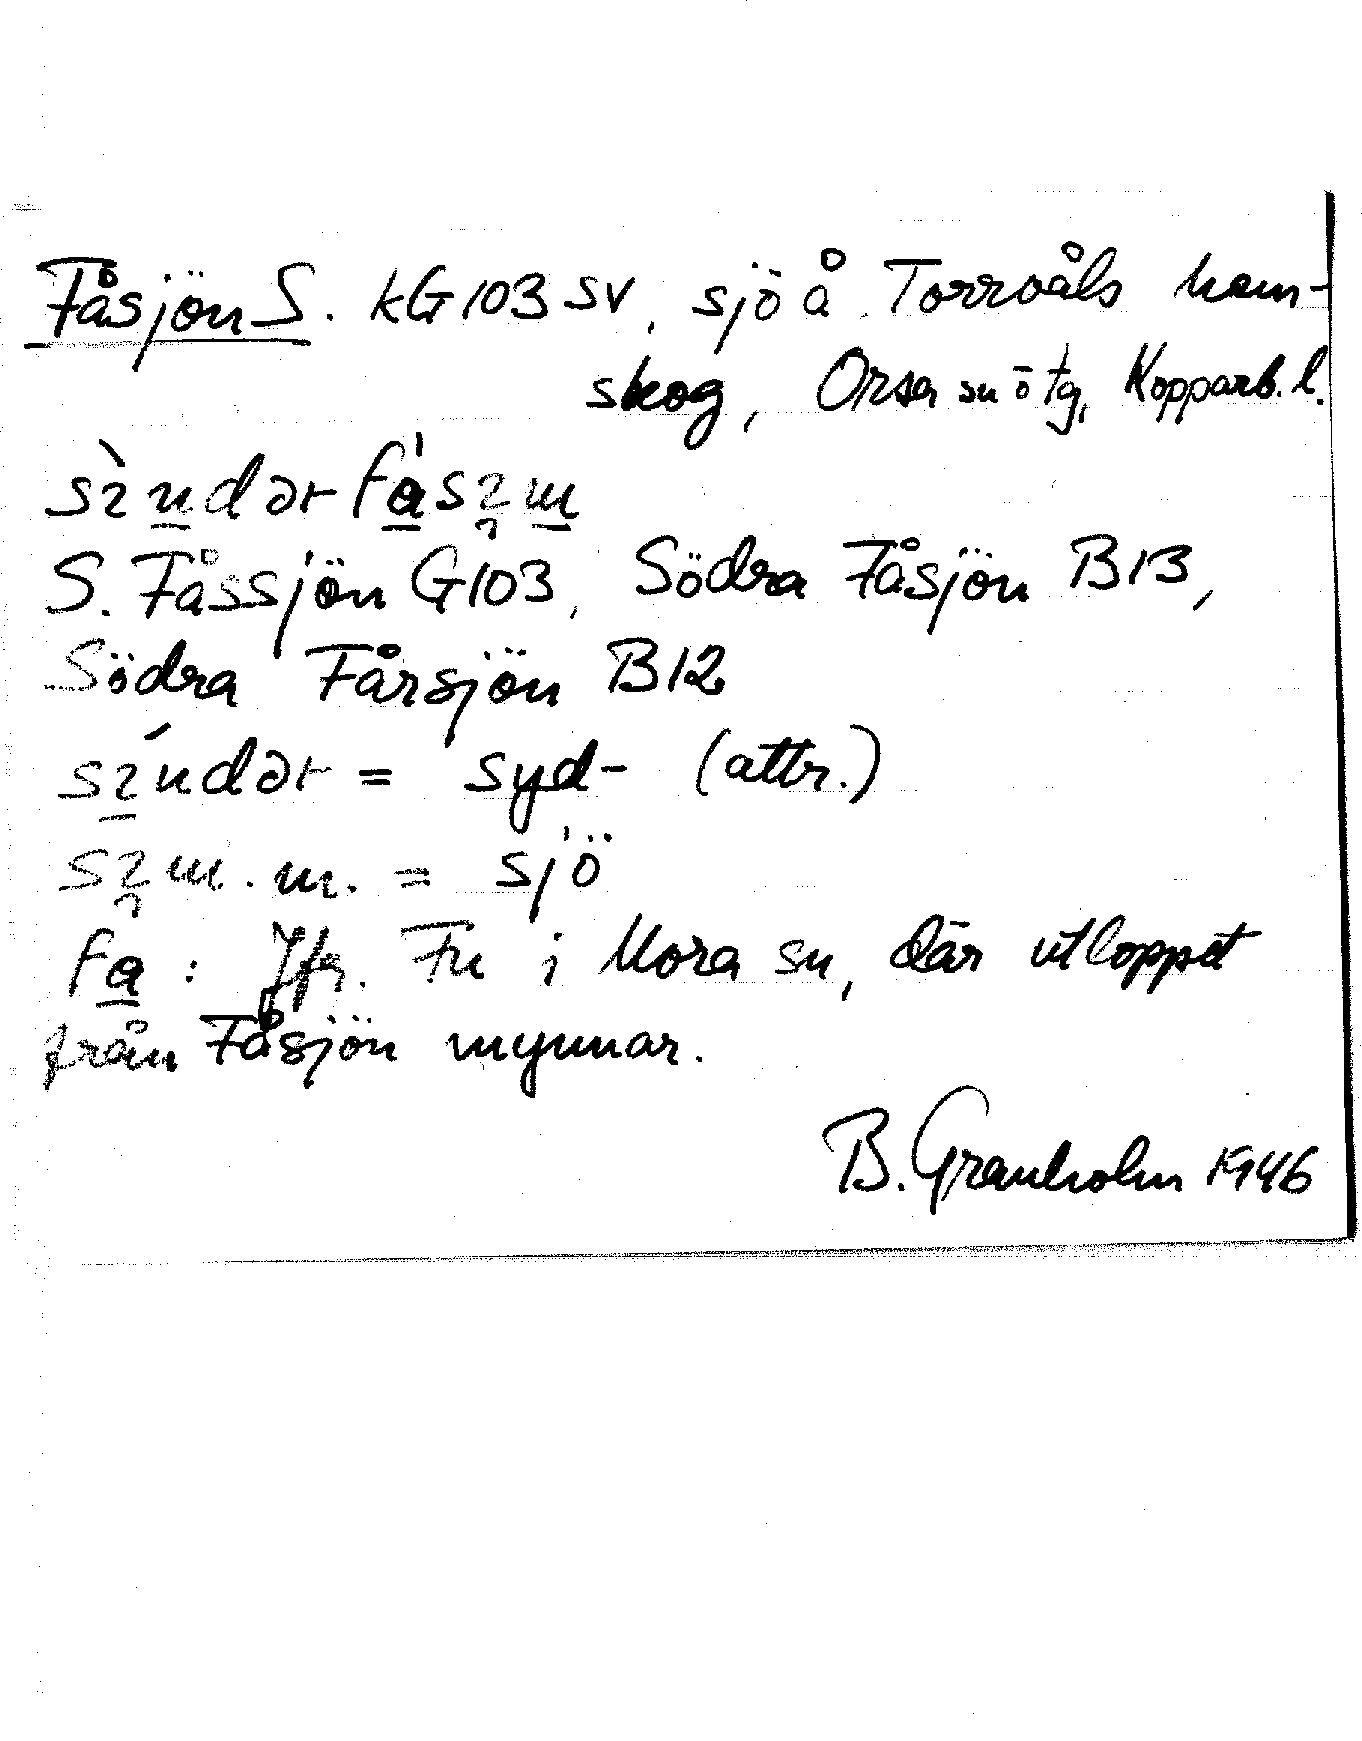 Fåsjön S. kG103 SV, sjö å Torrvåls hem-
skog, Orsa sn ö tg, Kopparb. l.
S. Fåssjön G103, Södra Fåsjön B13,
Södra Fårsjön B12
= syd- (attr.)
m. = sjö
fa : Jfr. Fu i Mora sn, där utloppet
från Fåsjön mynnar.
B. Granholm 1946